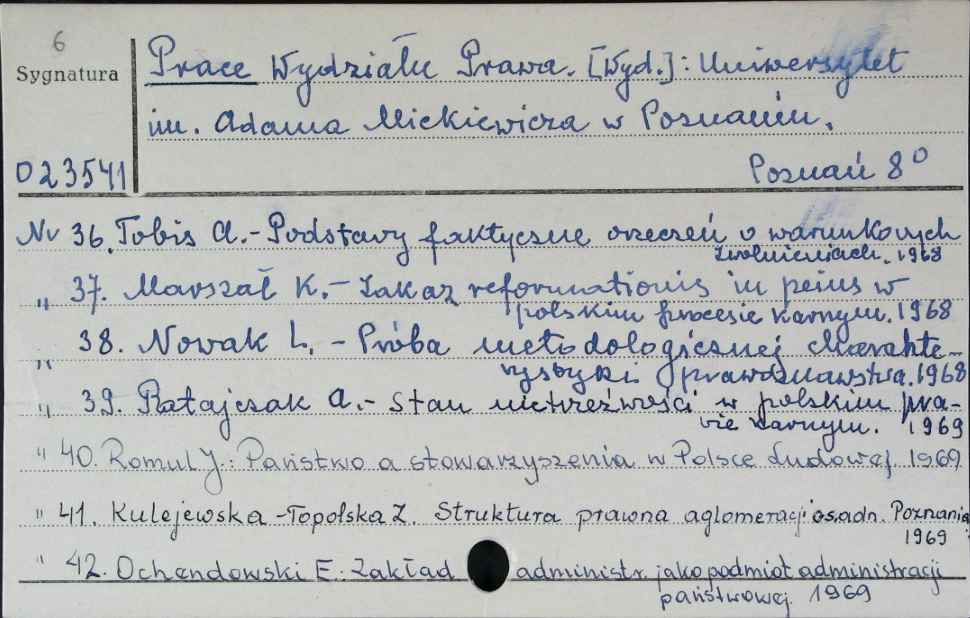 6
Sygnatura
Prace Wydziału Prawa. [Wyd.]: Uniwersytet
im. Adama Mickiewicza w Poznaniu.
023541
Poznań 8⁰
Nr 36. Tobis A. - Podstawy faktyczne orzeczeń o warunkowych
zwolnieniach. 1968
„ 37. Marszał K. - Zakaz reformationis in peius w
polskim procesie karnym. 1968
„ 38. Nowak L. - Próba metodologicznej charakte-
rystyki prawoznawstwa. 1968
„ 39. Ratajczak A. - Stan nietrzeźwości w polskim pra-
wie karnym. 1969
" 40. Romul J.: Państwo a stowarzyszenia w Polsce Ludowej 1969
" 41. Kulejewska-Topolska Z. Struktura prawna aglomeracji osadn. Poznania
1969
" 42. Ochendowski E. Zakład administr. jako podmiot administracji
państwowej. 1969